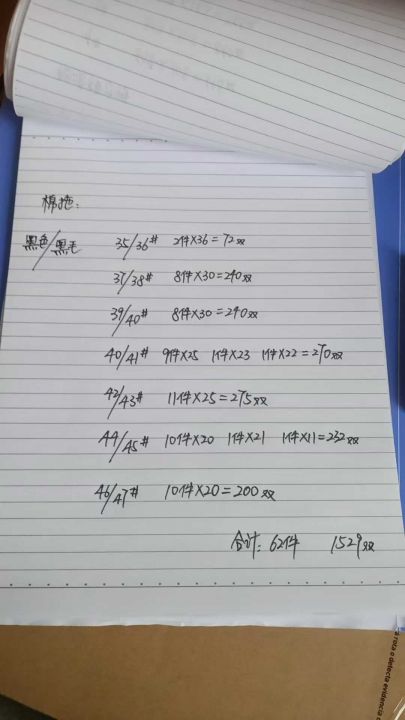 棉拖:
黑色/黑毛 35/36# 2件×36=72双
37/38# 8件×30=240双
39/40# 8件×30=240双
40/41# 9件×25 1件×23 1件×22=270双
42/43# 11件×25=275双
44/45# 10件×20 1件×21 1件×11=232双
46/47# 10件×20=200双
合计: 62件 1529双
a rota o detecta evidencia